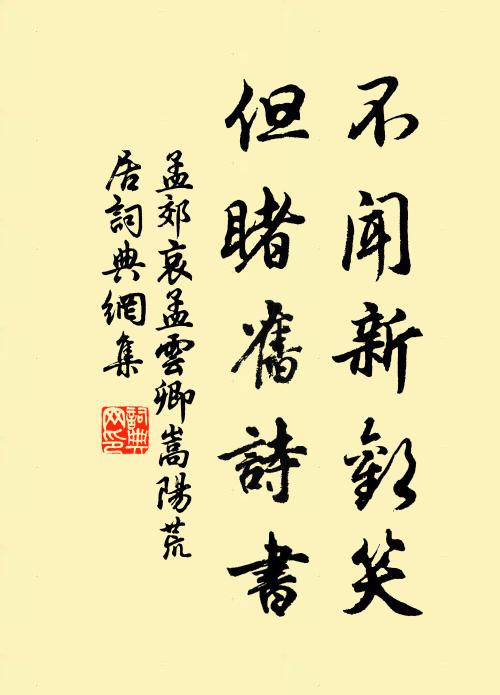 不聞新歡笑
但睹舊詩書
孟郊哀孟雲卿嵩陽荒
居詞典網集
詞典網印